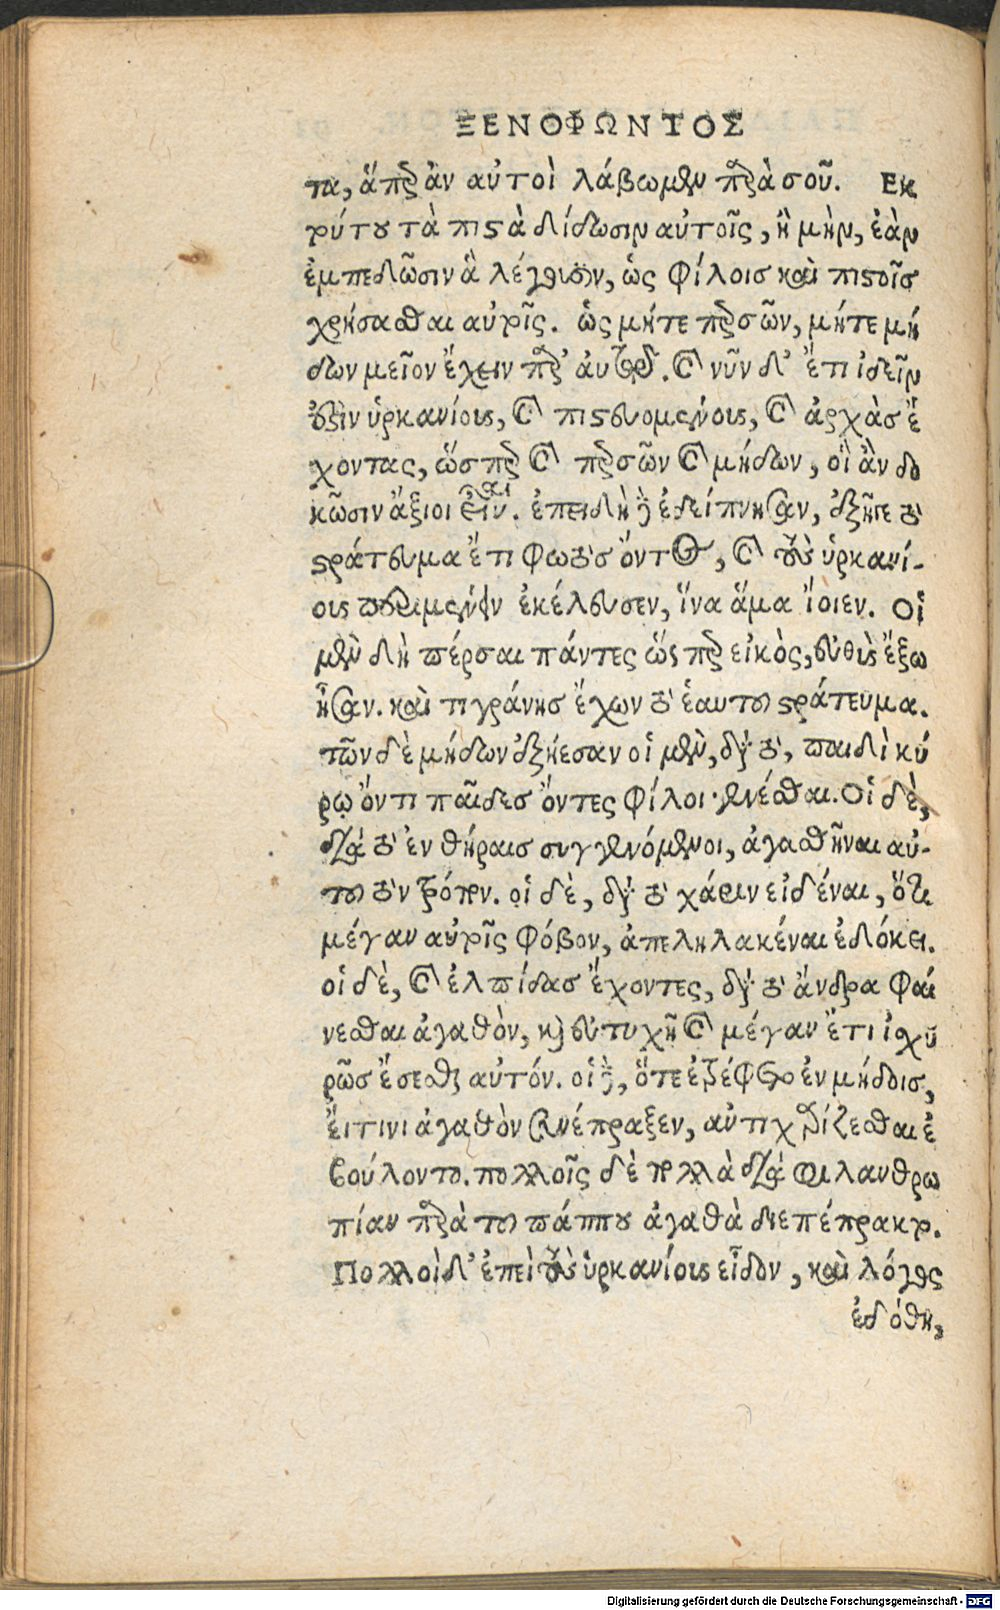 ΞΕΝΟΦΩΝΤΟΣ
τα, ἅπερ ἂν αὐτοὶ λάβωμεν παρὰ σοῦ. Εκ
τύτου τὰ πιστὰ δίδωσιν αὐτοῖς, ἢ μὴν, ἐὰν
ἐμπεδῶσιν ἃ λέγουσιν, ὡς φίλοισ καὶ πιστοῖσ
χρήσασθαι αὐτοῖς. ὡς μήτε περσῶν, μήτε μή
δων μεῖον ἔχειν παρ' αὐτῷ. καὶ νῦν δ' ἔτι ἰδεῖν
ἐστιν ὑρκανίους, καὶ πιστευομένους, καὶ ἀρχὰσ ἔ
χοντας, ὥσπερ καὶ περσῶν καὶ μήδων, οἳ ἂν δο
κῶσιν ἄξιοι εἶναι. ἐπειδὴ δὲ ἐδείπνησαν, ἐξῆγε τὸ
στράτευμα ἔτι φωτὸς ὄντος, καὶ τοὺς ὑρκανί-
ους περιμένειν ἐκέλευσεν, ἵνα ἅμα ἴοιεν. Οἱ
μὲν δὴ πέρσαι πάντες ὥσπερ εἰκὸς, εὐθὺς ἔξω
ἦσαν. καὶ τιγράνησ ἔχων τὸ ἑαυτοῦ στράτευμα.
τῶν δὲ μήδων ἐξῄεσαν οἱ μὲν, διὰ τὸ, παιδὶ κύ
ρῳ ὄντι παῖδεσ ὄντες φίλοι γενέσθαι. Οἱ δὲ,
διὰ τὸ ἐν θήραισ συγγενόμενοι, ἀγασθῆναι αὐ-
τοῦ τὸν τρόπον. οἱ δὲ, διὰ τὸ χάριν εἰδέναι, ὅτι
μέγαν αὐτοῖς φόβον, ἀπεληλακέναι ἐδόκει.
οἱ δὲ, καὶ ἐλπίδασ ἔχοντες, διὰ τὸ ἄνδρα φαί
νεσθαι ἀγαθὸν, καὶ εὐτυχῆ καὶ μέγαν ἔτι ἰσχυ
ρῶσ ἔσεσθαι αὐτόν. οἱ δὲ, ὅτε ἐτρέφετο ἐν μήδοισ,
εἴ τινι ἀγαθὸν συνέπραξεν, ἀντιχαρίζεσθαι ἐ
βούλοντο. πολλοῖς δὲ πολλὰ διὰ φιλανθρω
πίαν παρὰ τοῦ πάππου ἀγαθὰ διεπέπρακτο.
Πολλοὶ δ' ἐπεὶ τοὺς ὑρκανίους εἶδον, καὶ λόγος
ἐδόθη,
Digitalisierung gefördert durch die Deutsche Forschungsgemeinschaft - DFG